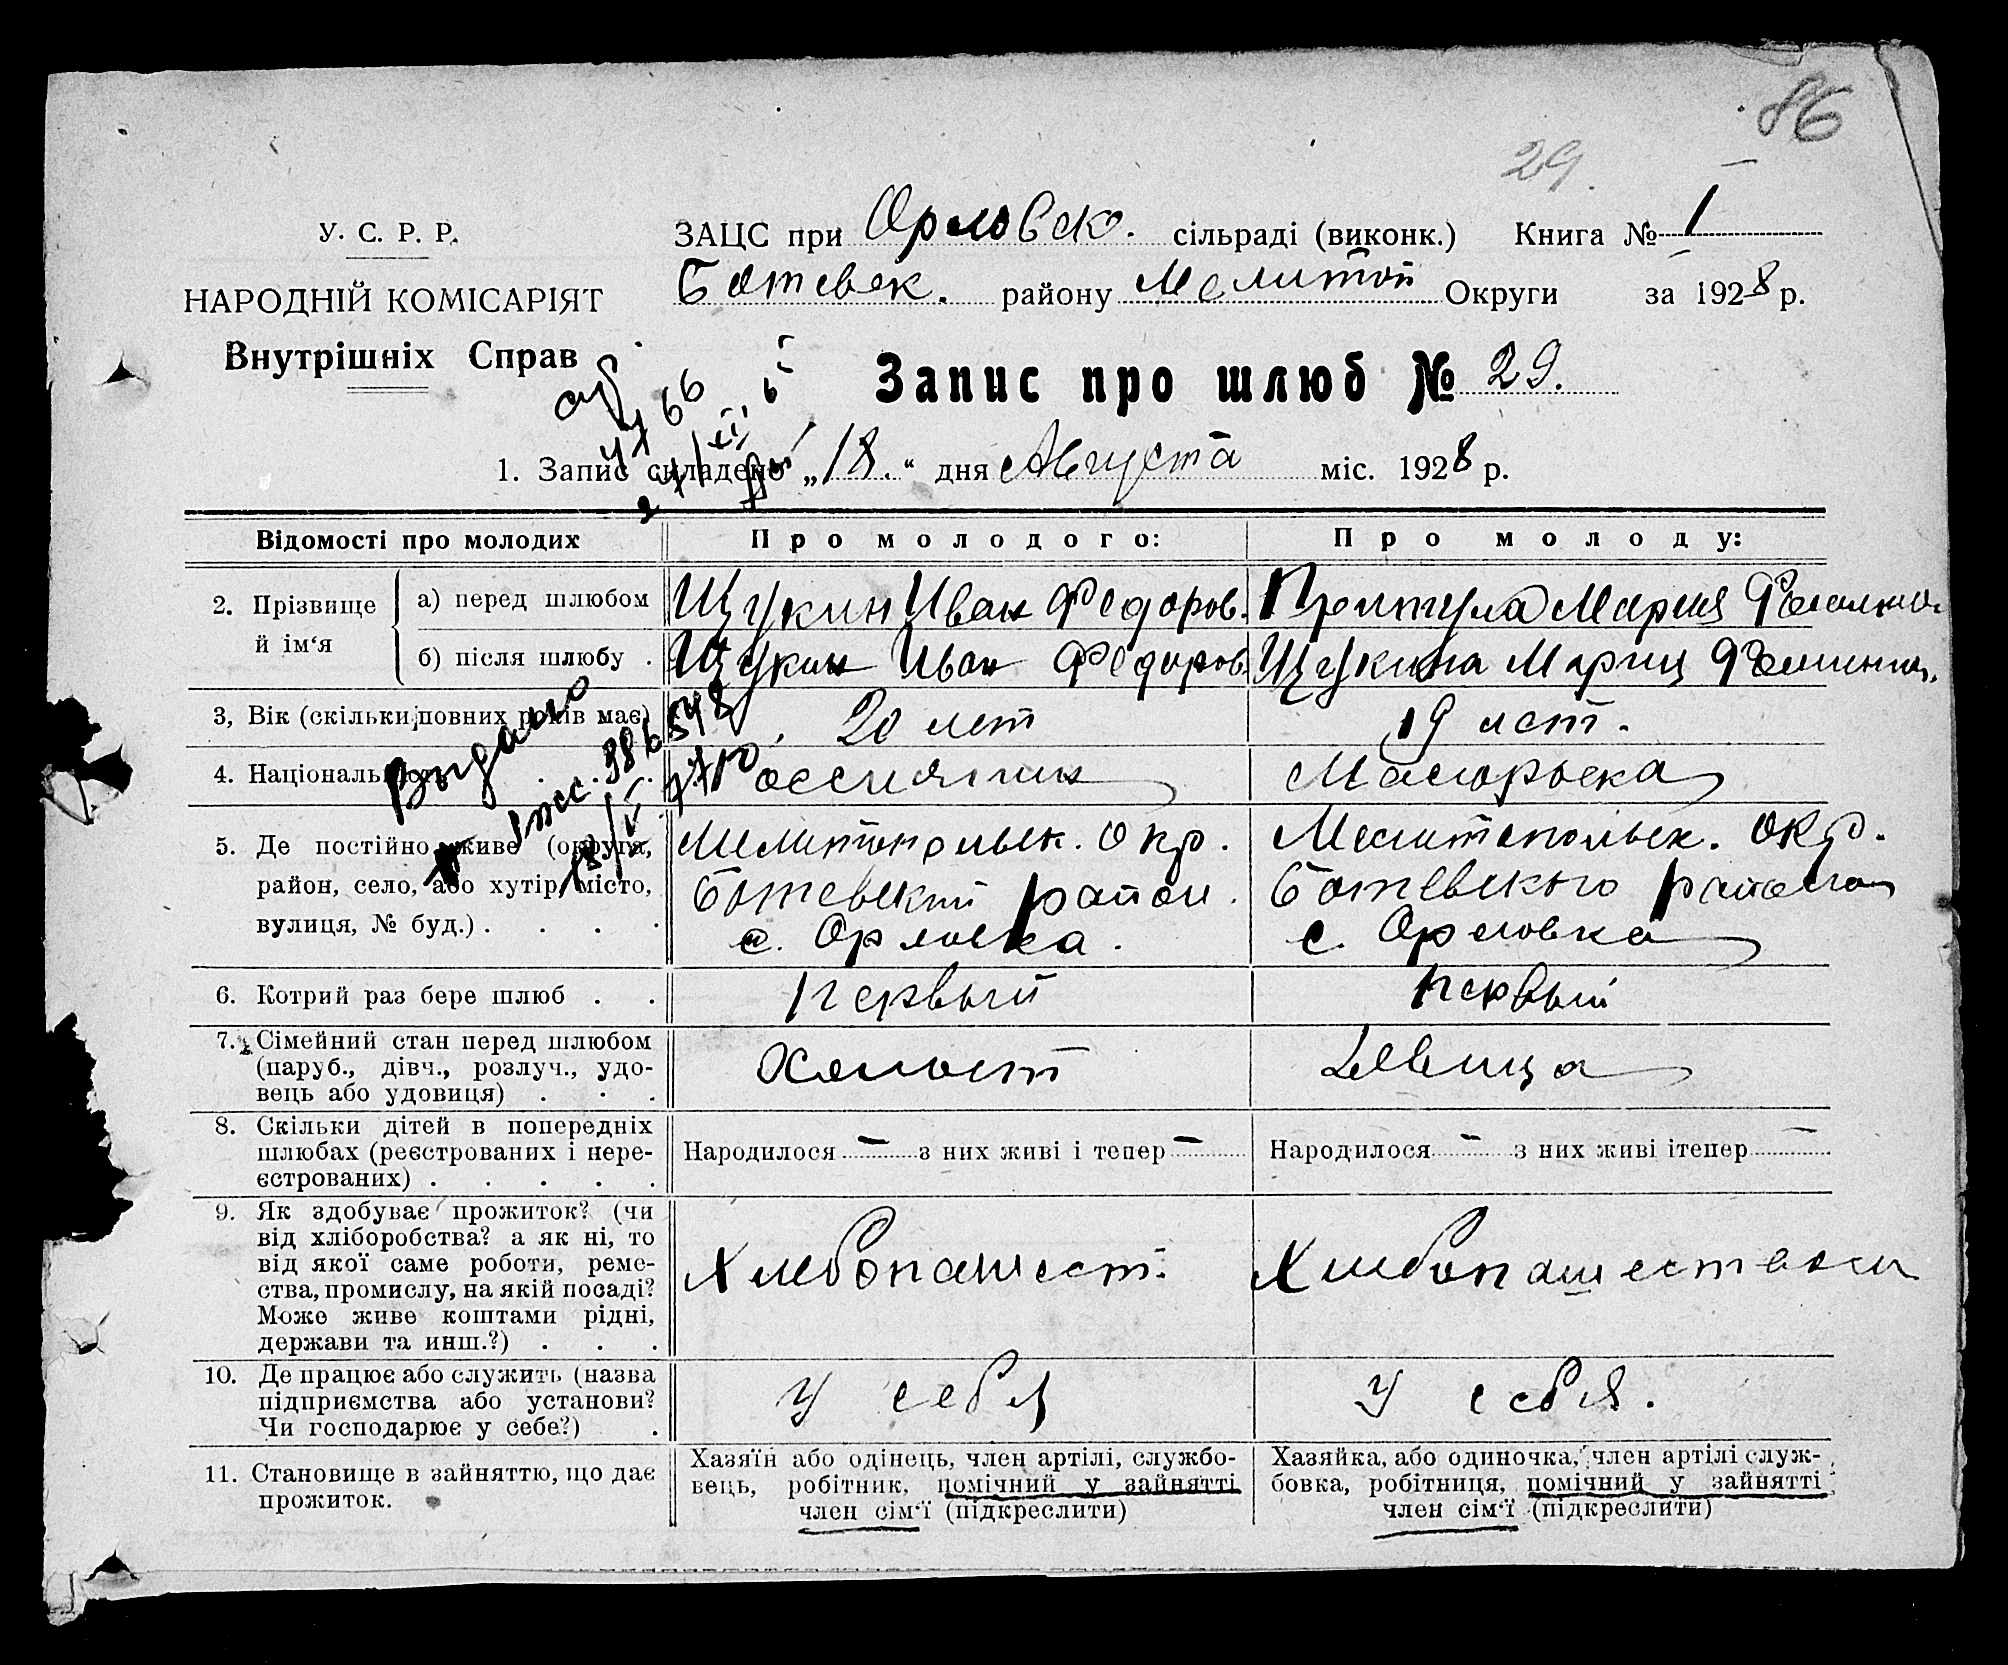 86
29.
У. С. Р. Р.
НАРОДНІЙ КОМІСАРІЯТ
Внутрішніх Справ
ЗАЦС при Орловско. сільраді (виконк.) Книга № I
Ботевск. району Мелитоп Округи за 1928 р.
Запис про шлюб № 29.
1. Запис складено „18.“ дня Августа міс. 1928 р.
Відомості про молодих
Про молодого:
Про молоду:
2. Прізвище й ім‘я
а) перед шлюбом
Щукин Иван Федоров.
Мария
б) після шлюбу .
Щукин Иван Федоров.
Щукина Мария
3, Вік (скільки повних років має)
20 лет
19 лет.
4. Національність . . .
Россиянин
Малорьска
5. Де постійно живе (округа,
район, село, або хутір, місто,
вулиця, № буд.) . . . .
Мелитопольск. окр.
Ботевский район.
с. Орловка.
Мелитопольск. окр.
Ботевского района
с. Орловка
6. Котрий раз бере шлюб . .
Первый
Первый
7. Сімейний стан перед шлюбом
(паруб., дівч., розлуч., удо-
вець або удовиця) . . .
Холост
Девица
8. Скільки дітей в попередніх
шлюбах (реєстрованих і нере-
єстрованих) . . . . .
Народилося — з них живі і тепер —
Народилося — з них живі ітепер —
9. Як здобуває прожиток? (чи
від хліборобства? а як ні, то
від якої саме роботи, реме-
ства, промислу, на якій посаді?
Може живе коштами рідні,
держави та инш.?) . . .
Хлебопашест.
Хлебопашеством
10. Де працює або служить (назва
підприємства або установи?
Чи господарює у себе?) .
У себя
У себя.
11. Становище в зайняттю, що дає
прожиток.
Хазяїн або одінець, член артілі, службо-
вець, робітник, помічний у зайнятті
член сім‘ї (підкреслити)
Хазяйка, або одиночка, член артілі служ-
бовка, робітниця, помічний у зайнятті
член сім‘ї (підкреслити)
Выдано